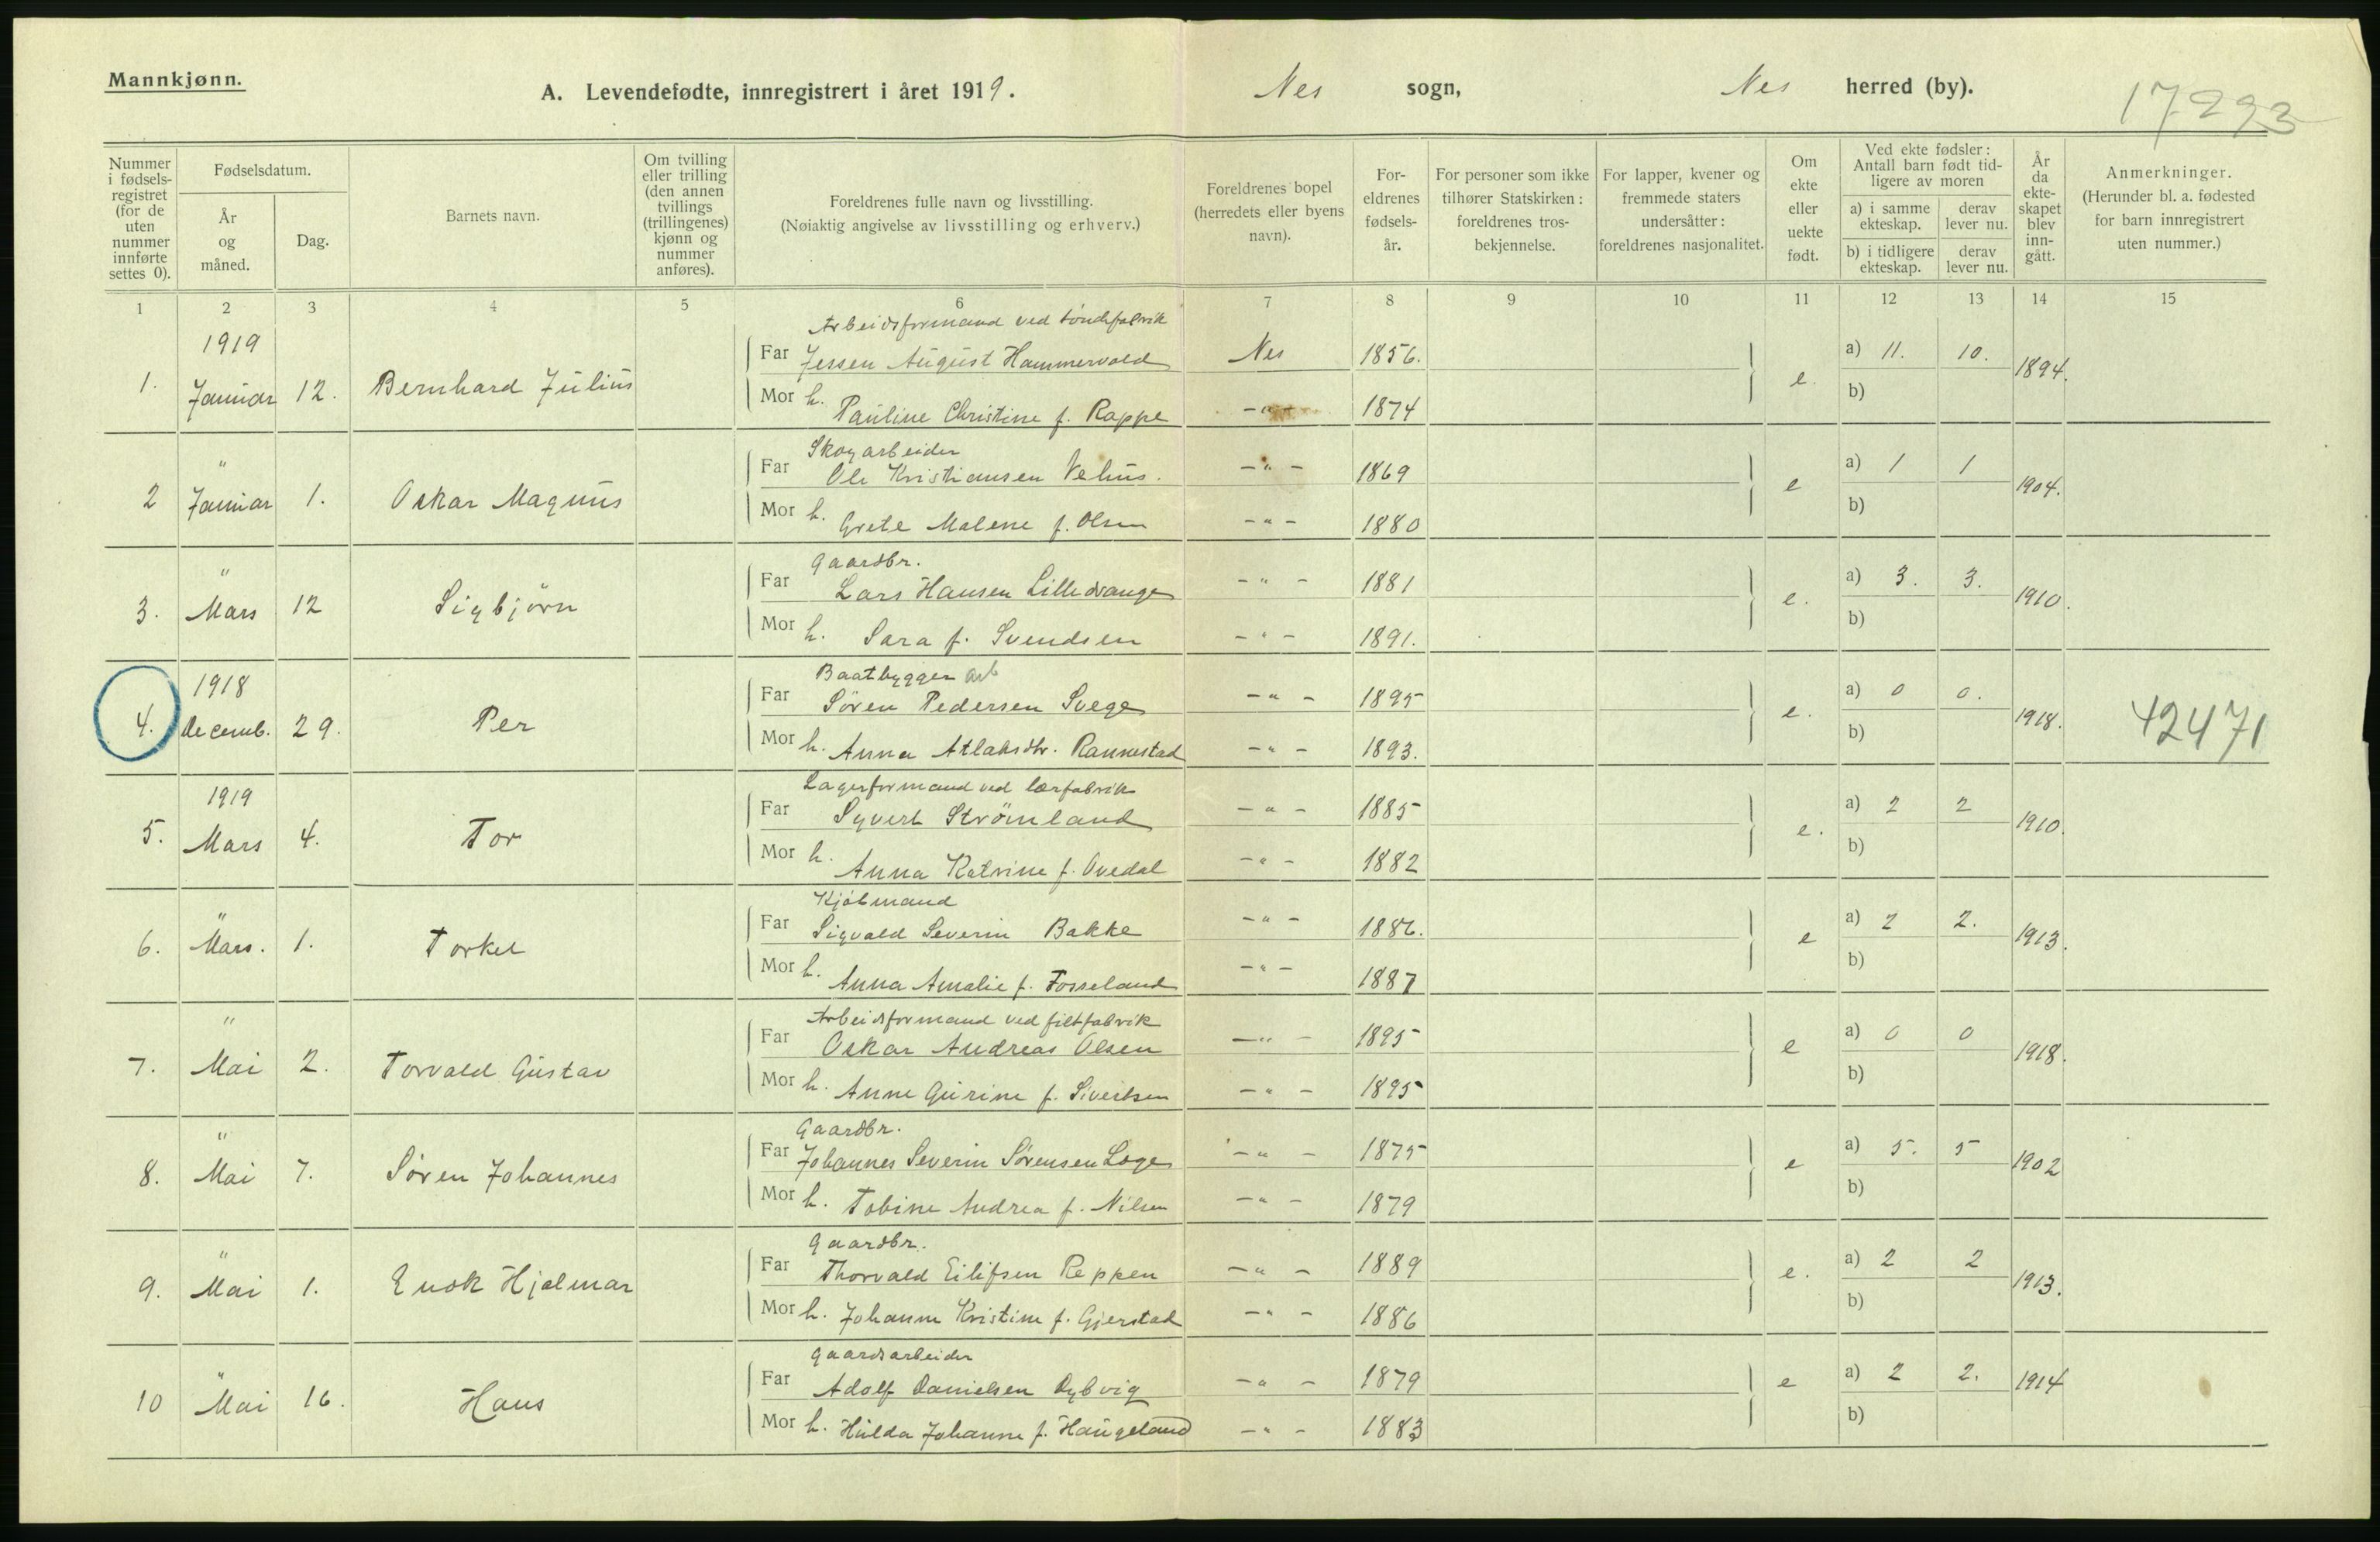 Mannkjønn.
A. Levendefødte, innregistrert i året 1919.
Nes sogn,
Nes herred (by).
17293
Nummer i fødsels-registret (for de uten nummer innførte settes 0).
Fødselsdatum.
År og måned.
Dag.
Barnets navn.
Om tvilling eller trilling (den annen tvillings (trillingenes) kjønn og nummer anføres).
Foreldrenes fulle navn og livsstilling.
(Nøiaktig angivelse av livsstilling og erhverv.)
Foreldrenes bopel (herredets eller byens navn).
For-eldrenes fødsels-år.
For personer som ikke tilhører Statskirken: foreldrenes tros-bekjennelse.
For lapper, kvener og fremmede staters undersåtter: foreldrenes nasjonalitet.
Om ekte eller uekte født.
Ved ekte fødsler: Antall barn født tid-ligere av moren
a) i samme ekteskap.
derav lever nu.
b) i tidligere ekteskap.
derav lever nu.
År da ekte-skapet blev inn-gått.
Anmerkninger.
(Herunder bl. a. fødested for barn innregistrert uten nummer.)
1 2 3 4 5 6 7 8 9 10 11 12 13 14 15
Arbeidsformand ved tøndefabrik
1919
Far Jessen August Hammervold Nes 1856. a) 11. 10.
1. Januar 12. Bernhard Julius e. 1894.
Mor h. Pauline Christine f. Rappe -"- 1874 b)
Skogarbeider
" Far Ole Kristiansen Vehus. -"- 1869 a) 1 1
2 Januar 1. Oskar Magnus e 1904.
Mor h. Grete Malene f. Olsen -"- 1880 b)
Gaardbr.
" Far Lars Hansen Lilledrange -"- 1881 a) 3. 3.
3. Mars 12 Sigbjörn e. 1910.
Mor h. Sara f. Svendsen -"- 1891. b)
Baatbygger arb
1918 Far Søren Pedersen Svege -"- 1895 a) 0 0.
4. Decemb. 29. Per e. 1918. 42471
Mor h. Anna Atlaksdtr. Rannestad -"- 1893. b)
Lagerformand ved lærfabrik
1919 Far Syvert Strömland -"- 1885 a) 2 2
5. Mars 4. Tor e. 1910.
Mor h. Anna Katrine f. Ovedal -"- 1882 b)
Kjöbmand
" Far Sigvald Severin Bakke -"- 1886. a) 2 2.
6. Mars. 1. Torkel e 1913.
Mor h. Anna Amalie f. Fosseland -"- 1887 b)
Arbeidsformand ved filtfabrik
" Far Oskar Andreas Olsen -"- 1895 a) 0 0
7. Mai 2. Torvald Gustav e 1918.
Mor h. Anne Gurine f. Sivertsen -"- 1895 b)
Gaardbr.
" Far Johannes Severin Sørensen Loge -"- 1875 a) 5. 5
8. Mai 7. Søren Johannes e 1902
Mor h. Tobine Andrea f. Nilsen -"- 1879 b)
Gaardbr.
" Far Thorvald Eilifsen Reppen -"- 1889 a) 2 2
9. Mai 1. Enok Hjalmar e. 1913.
Mor h. Johanne Kristine f. Gjerstad -"- 1886 b)
Gaardsarbeider
" Far Adolf Danielsen Dybvig -"- 1879 a) 2 2.
10 Mai 16. Hans e 1914
Mor h. Hulda Johanne f. Haugeland -"- 1883 b)